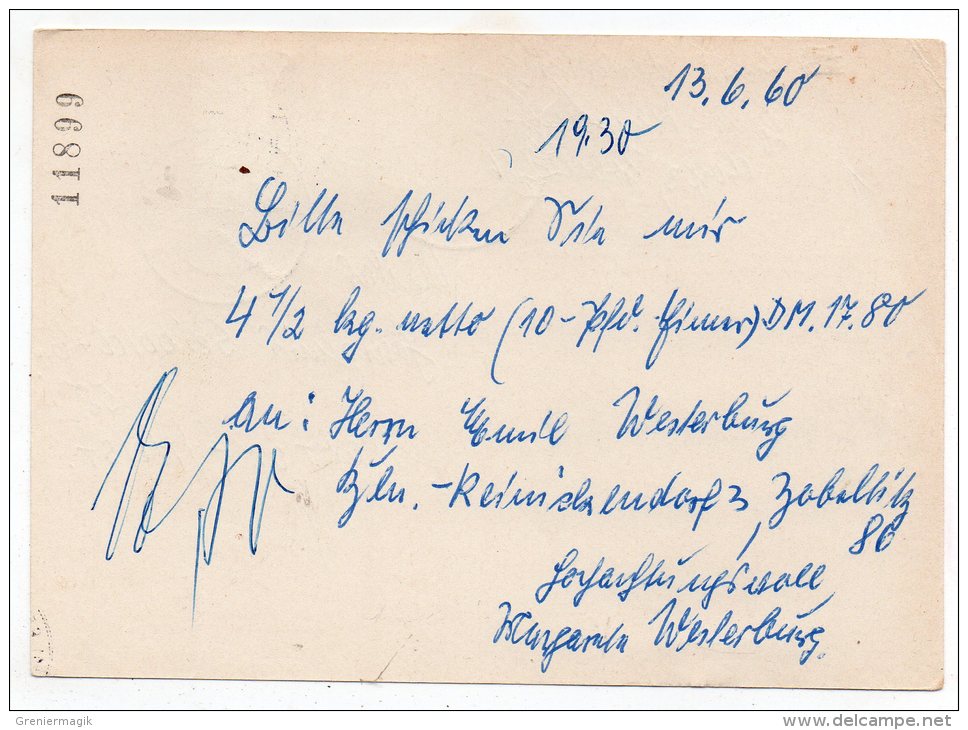 11899
13.6.60
19.30
Bitte schicken Sie mir
4 1/2 kg. netto (10-Pfd. Eimer) DM. 17.80
an: Herrn Emil Westerburg
Bln.-Reinickendorf 3, Zobeltitz
86
Hochachtungsvoll
Margarete Westerburg.
Greniermagik
www.delcampe.net